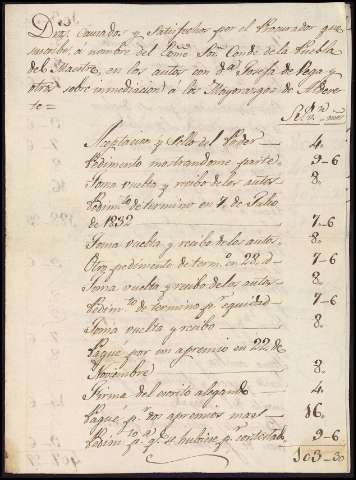 Dros. Causados y Satisfechos por el Procurador que
suscribe, a nombre del Exmo. Sor. Conde de la Puebla
del Maestre, en los autos con da. Josefa de Vega y
otros sobre inmediacion a los Mayorazgos de
te =
Aceptacion y sello del Poder 4.
Pedimento mostrandome parte 9-6
Toma vuelta y recibo de los autos 8.
Pedimto. de termino en 7 de Julio
de 1832 7-6
Toma vuelta y recibo de los autos 8.
Otro pedimento de termo. en 22 id 7-6
Toma vuelta y recibo de los autos 8.
Pedimto. de termino pr. equidad 7-6
Toma vuelta y recibo 8.
Pague por un apremio en 22 de
Noviembre 8.
Firma del escrito alegando 4.
Pagué pr. dos apremios mas 16.
Pedimto. pa. q. se hubiese pr. contestado 9-6
103-30